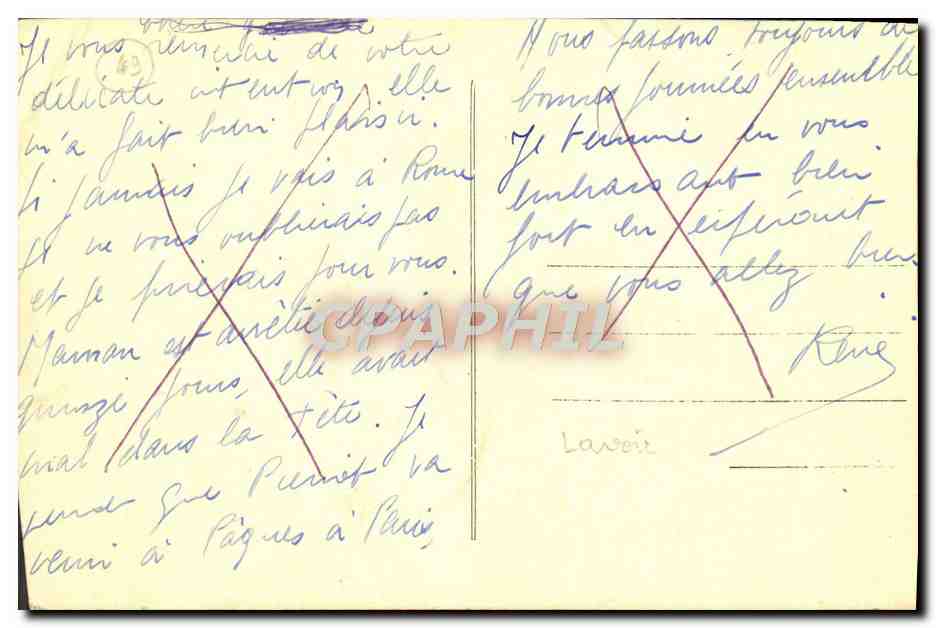 Je vous remercie de votre
49
délicate intention, elle
m'a fait bien plaisir.
Si jamais je vais à Rome
je ne vous oublierais pas
et je prierais pour vous.
Maman est arrêtée depuis
quinze jours, elle avait
mal dans la tête. Je
que Pierrot va
venir à Pâques à Paris,
Nous passons toujours de
bonnes journées ensemble
Je termine en vous
embrassant bien
fort en espérant
que vous allez bien.
René
Lavoir
CPAPHIL